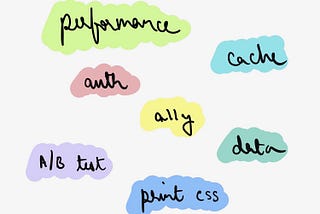 performance
cache
auth
a11y
data
A/B test
print css